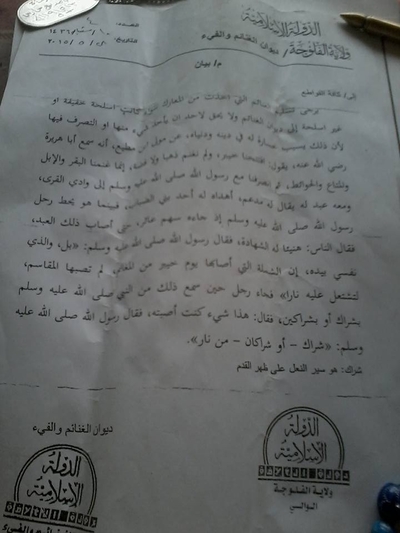 الدولة الإسلامية
ولاية الفلوجة / ديوان الغنائم والفيء
العدد:
التاريخ: ١٤٣٦
٢٠١٥
م/ بيان
إلى/ كافة القواطع
يرجى تسليم الغنائم التي من المعارك اسلحة خفيفة او
غير اسلحة إلى ديوان الغنائم ولا يحق لاحد ان يأخذ منها او التصرف فيها
لأن ذلك يسبب خسارة له في دينه ودنياه. عن مولى ابن مطيع، أنه سمع أبا هريرة
رضي الله عنه، يقول: افتتحنا خيبر، ولم نغنم ذهبا ولا فضة، إنما غنمنا البقر والإبل
والمتاع والحوائط، ثم انصرفنا مع رسول الله صلى الله عليه وسلم إلى وادي القرى،
ومعه عبد له يقال له مدعم، أهداه له أحد بني الضباب، فبينما هو يحط رحل
رسول الله صلى الله عليه وسلم إذ جاءه سهم عائر، حتى أصاب ذلك العبد،
فقال الناس: هنيئا له الشهادة، فقال رسول الله صلى الله عليه وسلم: «بل، والذي
نفسي بيده، إن الشملة التي أصابها يوم خيبر من المغانم، لم تصبها المقاسم،
لتشتعل عليه نارا» فجاء رجل حين سمع ذلك من النبي صلى الله عليه وسلم
بشراك أو بشراكين، فقال: هذا شيء كنت أصبته، فقال رسول الله صلى الله عليه
وسلم: «شراك - أو شراكان - من نار».
شراك: هو سير النعل على ظهر القدم
ديوان الغنائم والفيء
الدولة الإسلامية
الدولة الإسلامية
ولاية الفلوجة
الوالي